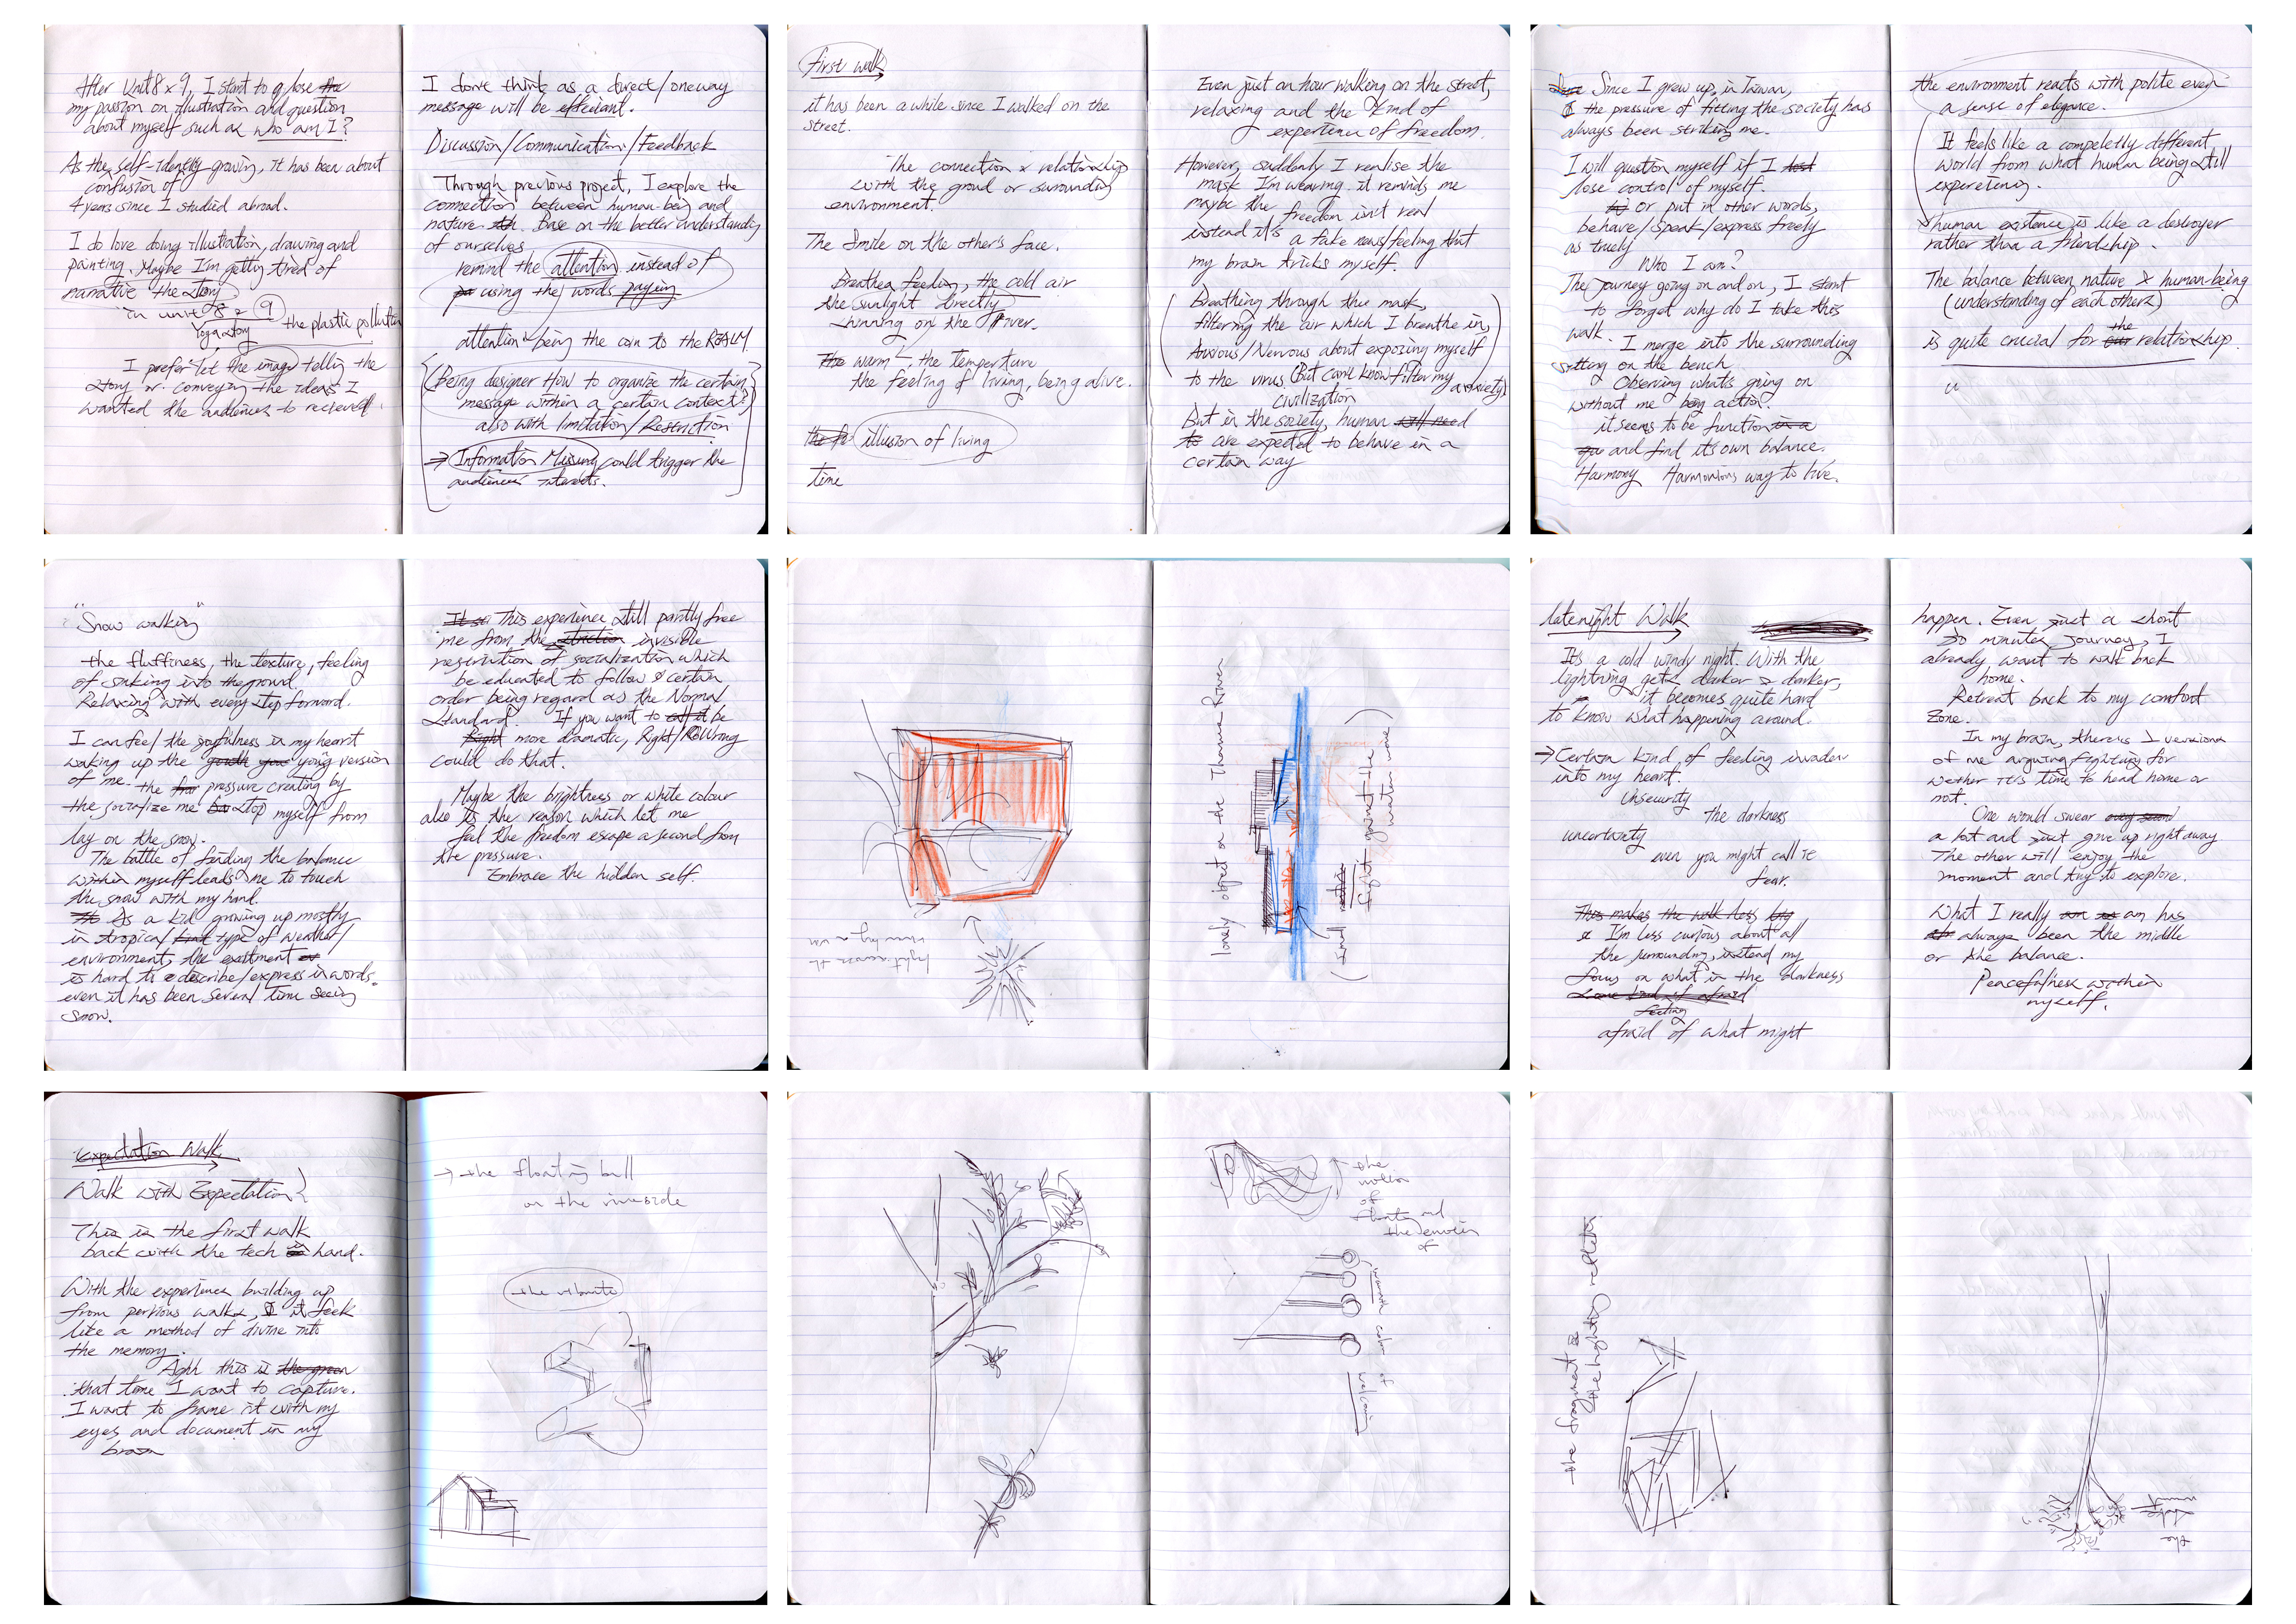 After Unit 8 & 9, I start to g lose the
my passion on illustration and question
about myself such as who am I?
As the self-identity growing, it has been about
confusion of
4 years since I studied abroad.
I do love doing illustration, drawing and
painting. Maybe I'm getting tired of
narrative the story
in unit 8 & 9
Yoga story the plastic pollution
I prefer let the image telling the
story or conveying the ideas I
wanted the audiences to recieved.
I don't think as a direct/oneway
message will be effeciant.
Discussion/Communication/Feedback
Through previous project, I explore the
connection between human-being and
nature. Base on the better understanding
of ourselves,
remind the attention instead of
using the words paying
attention being the coin to the REALM.
(Being designer How to organize the certain
message within a certain context?)
also with limitation/Restriction
→ Information Missing could trigger the
audiences' interests.
First walk
it has been a while since I walked on the
street.
The connection & relationship
with the groud or surounding
environment.
The Smile on the other's face.
Breathea feeling, the cold air
the sunlight directly
shinning on the River.
The warm - the temperture
the feeling of living, being alive.
illusion of living
time
Even just an hour walking on the street,
relaxing and the kind of
experience of freedom.
However, suddenly I realise the
mask I'm wearing. it reminds me
maybe the freedom isn't real
instead it's a fake news/feeling that
my brain tricks myself.
Breathing through this mask,
filtering the air which I breathe in,
Anxious/Nervous about exposing myself
to the virus. (But can't know filter my anxiety)
civilization
But in the society, human will need
to are expected to behave in a
certain way
Since I grew up in Taiwan,
the pressure of fitting the society has
always been striking me.
I will question myself if I lost
lose control of myself.
or put in other words,
behave/speak/express freely
as truely
Who I am?
The journey going on and on, I start
to forget why do I take this
walk.
I merge into the surrounding
sitting on the bench
Observing what's going on
without me being action.
it seems to be function in a
and find it's own balance.
Harmony Harmonious way to live.
the environment reacts with polite even
a sense of elegance.
It feels like a completly different
world from what human being still
expereteing.
human existence is like a destroyer
rather than a friendship.
The balance between native & human-being
(understanding of each others)
is quite crucial for the our relationship.
"Snow walking"
the fluffiness, the texture, feeling
of sinking into the ground.
Relaxing with every step forward.
I can feel the joyfulness in my heart
waking up the young version
of me. the pressure creating by
the socialize me stop myself from
lay on the snow.
The battle of finding the balance
within myself leads me to touch
the snow with my hand.
As a kid growing up mostly
in tropical kind type of weather/
environment, the exeitment
is hard to describe/express in words.
even it has been several time seeing
snow.
This experience still partly free
me from the invisible
restriction of socialization which
be educated to follow certain
order being regard as the Normal
Standard. If you want to call it be
Right more dramatic, Right/Wrong
could do that.
Maybe the brightness or white colour
also is the reason which let me
feel the freedom escape a second from
the pressure.
Embrace the hidden self.
lonely object on the Thames River
(and
fight against the
water wave)
latenight Walk
It's a cold windy night. With the
lightning gets darker & darker,
it becomes quite hard
to know what happening around.
→ Certain kind of feeling invader
into my heart.
Unsecurity
the darkness
uncertainty
even you might call it
fear.
This makes the walk less
I'm less curious about all
the surrounding, instead my
focus on what in the darkness
Some kind of afraid
feeling
afraid of what might
happen. Even just a short
30 minutes journey, I
already want to walk back
home.
Retreat back to my comfort
zone.
In my brain, theres 2 versions
of me arguing/fighting for
wether it's time to head home or
not.
One would swear
a lot and just give up right away
The other will enjoy the
moment and try to explore.
What I really am has
always been the middle
or the balance.
Peacefulness within
myself.
Expectation Walk
Walk with Expectation
This is the first walk
back with the tech hand.
With the experience building up
from pervious walks, it feels
like a method of divine into
the memory.
Aghh this is the green
that time I want to capture.
I want to frame it with my
eyes and document in my
brain
→ the floating ball
on the riverside
the vibrate
the
motion
of
floating and
the
of
warmth
color
of
welcoming
the fragment of
the lights reflets
the